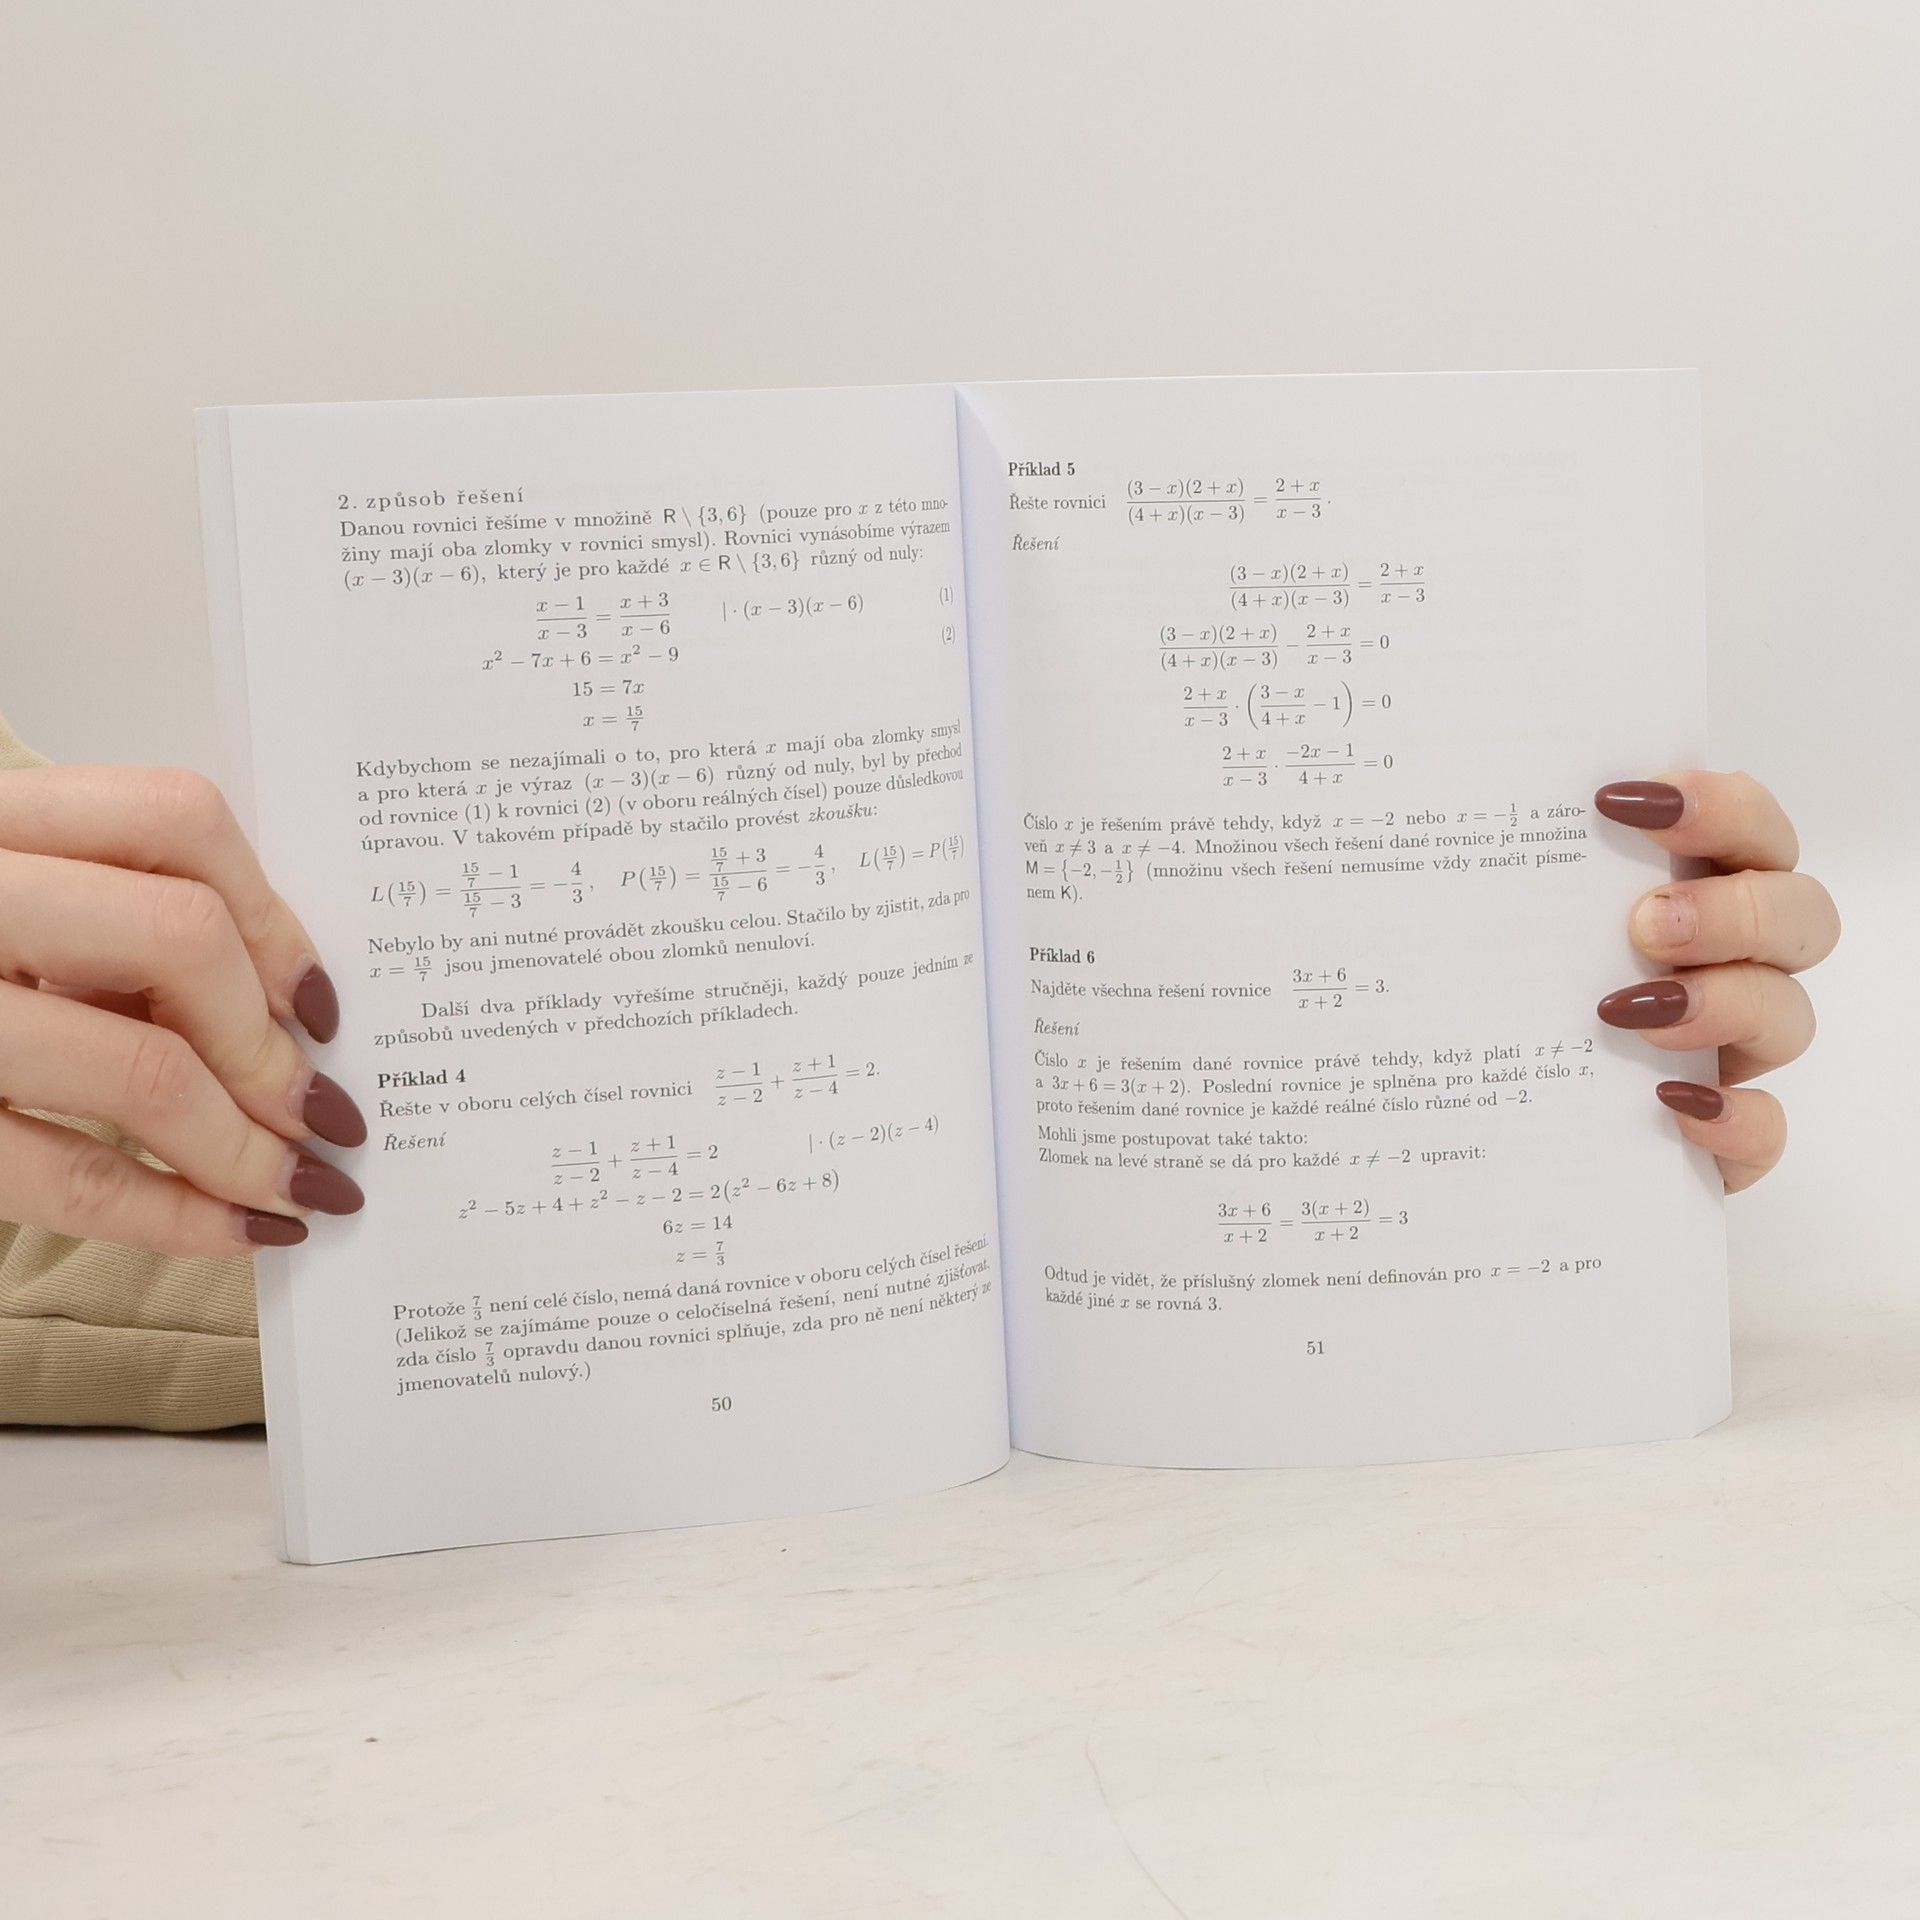 2. způsob řešení
Danou rovnici řešíme v množině R \ {3,6} (pouze pro x z této mno-
žiny mají oba zlomky v rovnici smysl). Rovnici vynásobíme výrazem
(x − 3)(x − 6), který je pro každé x ∈ R \ {3,6} různý od nuly:
(x − 1)/(x − 3) = (x + 3)/(x − 6) | · (x − 3)(x − 6) (1)
x² − 7x + 6 = x² − 9 (2)
15 = 7x
x = 15/7
Kdybychom se nezajímali o to, pro která x mají oba zlomky smysl
a pro která x je výraz (x − 3)(x − 6) různý od nuly, byl by přechod
od rovnice (1) k rovnici (2) (v oboru reálných čísel) pouze důsledkovou
úpravou. V takovém případě by stačilo provést zkoušku:
L(15/7) = (15/7 − 1)/(15/7 − 3) = −4/3, P(15/7) = (15/7 + 3)/(15/7 − 6) = −4/3, L(15/7) = P(15/7)
Nebylo by ani nutné provádět zkoušku celou. Stačilo by zjistit, zda pro
x = 15/7 jsou jmenovatelé obou zlomků nenuloví.
Další dva příklady vyřešíme stručněji, každý pouze jedním ze
způsobů uvedených v předchozích příkladech.
Příklad 4
Řešte v oboru celých čísel rovnici (z − 1)/(z − 2) + (z + 1)/(z − 4) = 2.
Řešení
(z − 1)/(z − 2) + (z + 1)/(z − 4) = 2 | · (z − 2)(z − 4)
z² − 5z + 4 + z² − z − 2 = 2(z² − 6z + 8)
6z = 14
z = 7/3
Protože 7/3 není celé číslo, nemá daná rovnice v oboru celých čísel řešení.
(Jelikož se zajímáme pouze o celočíselná řešení, není nutné zjišťovat,
zda číslo 7/3 opravdu danou rovnici splňuje, zda pro ně není některý ze
jmenovatelů nulový.)
50
Příklad 5
Řešte rovnici ((3 − x)(2 + x))/((4 + x)(x − 3)) = (2 + x)/(x − 3).
Řešení
((3 − x)(2 + x))/((4 + x)(x − 3)) = (2 + x)/(x − 3)
((3 − x)(2 + x))/((4 + x)(x − 3)) − (2 + x)/(x − 3) = 0
(2 + x)/(x − 3) · ((3 − x)/(4 + x) − 1) = 0
(2 + x)/(x − 3) · (−2x − 1)/(4 + x) = 0
Číslo x je řešením právě tehdy, když x = −2 nebo x = −1/2 a záro-
veň x ≠ 3 a x ≠ −4. Množinou všech řešení dané rovnice je množina
M = {−2, −1/2} (množinu všech řešení nemusíme vždy značit písme-
nem K).
Příklad 6
Najděte všechna řešení rovnice (3x + 6)/(x + 2) = 3.
Řešení
Číslo x je řešením dané rovnice právě tehdy, když platí x ≠ −2
a 3x + 6 = 3(x + 2). Poslední rovnice je splněna pro každé číslo x,
proto řešením dané rovnice je každé reálné číslo různé od −2.
Mohli jsme postupovat také takto:
Zlomek na levé straně se dá pro každé x ≠ −2 upravit:
(3x + 6)/(x + 2) = (3(x + 2))/(x + 2) = 3
Odtud je vidět, že příslušný zlomek není definován pro x = −2 a pro
každé jiné x se rovná 3.
51